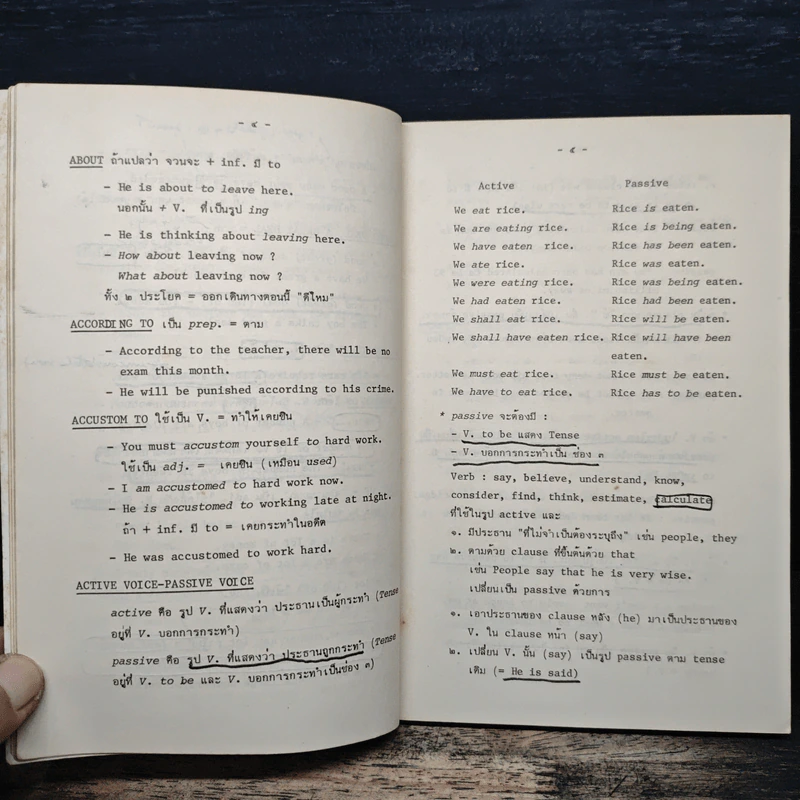 - ๔ -
ABOUT ถ้าแปลว่า จวนจะ + inf. มี to
- He is about to leave here.
นอกนั้น + V. ที่เป็นรูป ing
- He is thinking about leaving here.
- How about leaving now ?
What about leaving now ?
ทั้ง ๒ ประโยค = ออกเดินทางตอนนี้ "ดีไหม"
ACCORDING TO เป็น prep. = ตาม
- According to the teacher, there will be no
exam this month.
- He will be punished according to his crime.
ACCUSTOM TO ใช้เป็น V. = ทำให้เคยชิน
- You must accustom yourself to hard work.
ใช้เป็น adj. = เคยชิน (เหมือน used)
- I am accustomed to hard work now.
- He is accustomed to working late at night.
ถ้า + inf. มี to = เคยกระทำในอดีต
- He was accustomed to work hard.
ACTIVE VOICE-PASSIVE VOICE
active คือ รูป V. ที่แสดงว่า ประธานเป็นผู้กระทำ (Tense
อยู่ที่ V. บอกการกระทำ)
passive คือ รูป V. ที่แสดงว่า ประธานถูกกระทำ (Tense
อยู่ที่ V. to be และ V. บอกการกระทำเป็นช่อง ๓)
- ๕ -
Active Passive
We eat rice. Rice is eaten.
We are eating rice. Rice is being eaten.
We have eaten rice. Rice has been eaten.
We ate rice. Rice was eaten.
We were eating rice. Rice was being eaten.
We had eaten rice. Rice had been eaten.
We shall eat rice. Rice will be eaten.
We shall have eaten rice. Rice will have been
eaten.
We must eat rice. Rice must be eaten.
We have to eat rice. Rice has to be eaten.
* passive จะต้องมี :
- V. to be แสดง Tense
- V. บอกการกระทำเป็น ช่อง ๓
Verb : say, believe, understand, know,
consider, find, think, estimate, calculate
ที่ใช้ในรูป active และ
๑. มีประธาน "ที่ไม่จำเป็นต้องระบุถึง" เช่น people, they
๒. ตามด้วย clause ที่ขึ้นต้นด้วย that
เช่น People say that he is very wise.
เปลี่ยนเป็น passive ด้วยการ
๑. เอาประธานของ clause หลัง (he) มาเป็นประธานของ
V. ใน clause หน้า (say)
๒. เปลี่ยน V. นั้น (say) เป็นรูป passive ตาม tense
เดิม (= He is said)